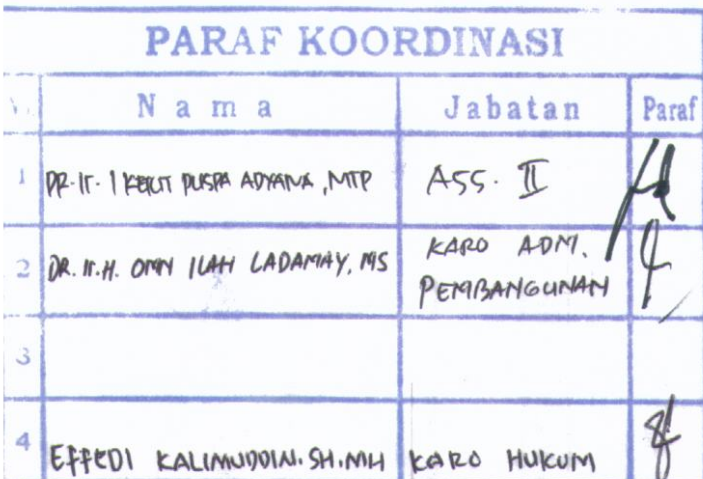 PARAF KOORDINASI
No Nama Jabatan Paraf
1 DR. Ir. I KETUT PUSPA ADYANA, MTP ASS. II
2 DR. Ir. H. OMN ILAH LADAMAY, MS KARO ADM.
PEMBANGUNAN
3
4 EFFEDI KALIMUDDIN. SH. MH KARO HUKUM